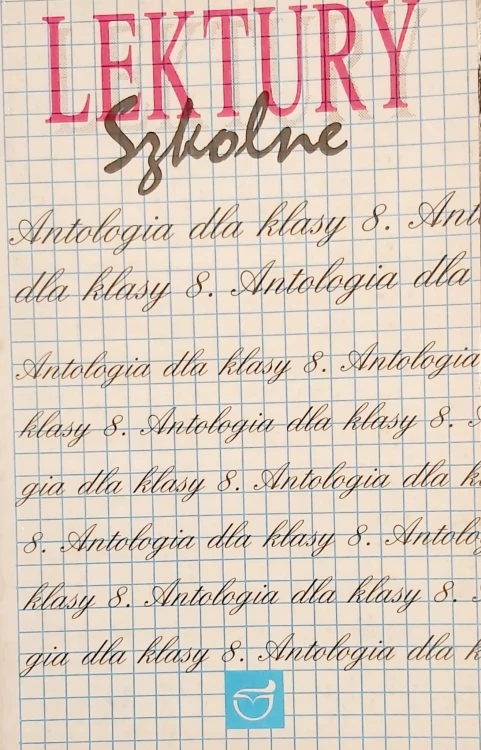 LEKTURY
Szkolne
Antologia dla klasy 8. Ant
dla klasy 8. Antologia dla
Antologia dla klasy 8. Antologia
klasy 8. Antologia dla klasy 8.
gia dla klasy 8. Antologia dla k
8. Antologia dla klasy 8. Antolo
klasy 8. Antologia dla klasy 8.
gia dla klasy 8. Antologia dla k